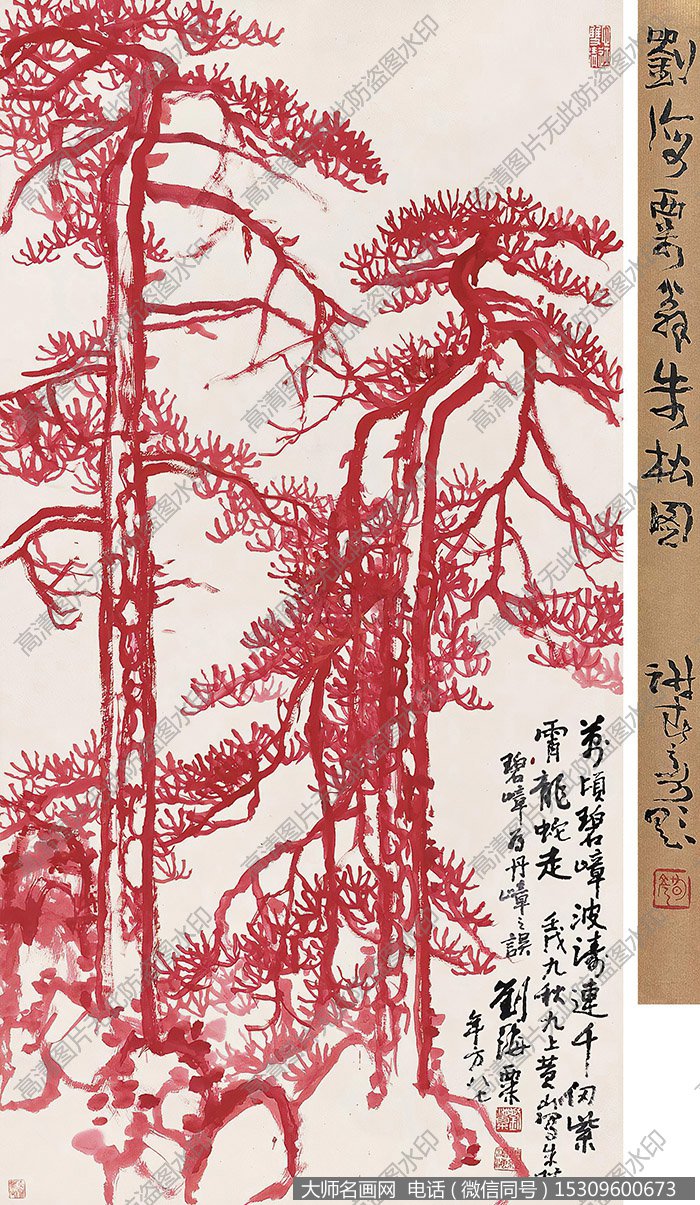 劉海粟翁朱松圖
萬頃碧嶂波濤連千仞紫
霄龍蛇走 壬戌九秋九上黄山寫朱松
碧嶂為丹嶂之誤
劉海粟
年方八七
高清图片无此防盗图水印
大师名画网 电话（微信同号）15309600673